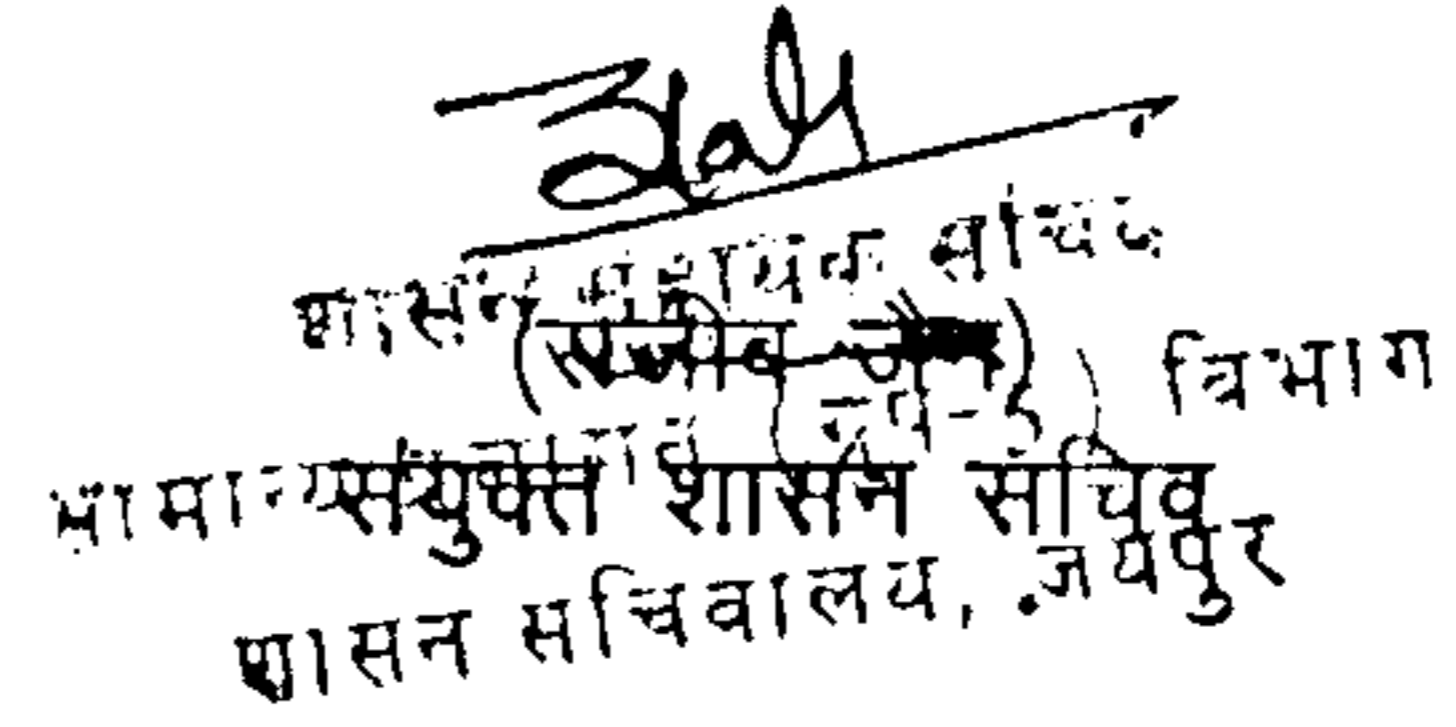 शासन सहायक सचिव
(संजीव जैन)
सामान्य विभाग
संयुक्त शासन सचिव
शासन सचिवालय, जयपुर